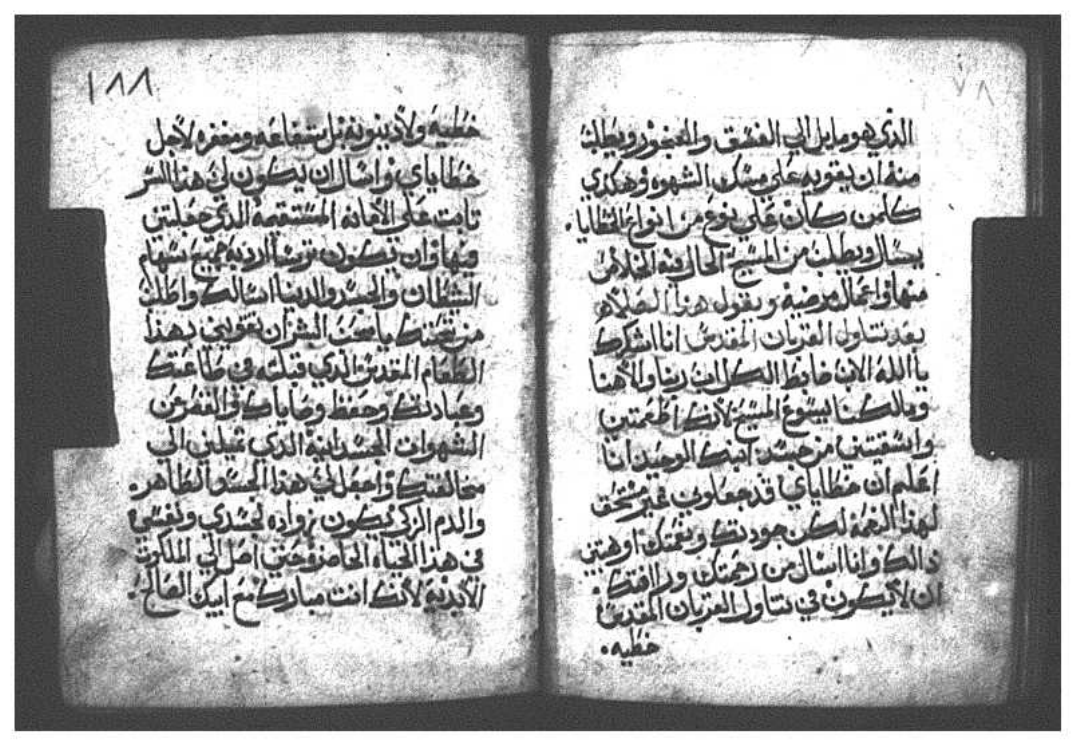 الذي هو مايل الي الفسق والفجور ويطلب
منه ان يقويه علي مسك الشهوه وهكدي
كلمن كان علي نوع من انواع الخطايا.
يسال ويطلب من المسيح الحال فيه الخلاص
منها واعمال مرضيه ويقول هدا الصلاه
بعد تناول القربان المقدس انا اشكرك
يا الله الاب ضابط الكل اب ربنا والاهنا
ومالكنا يسوع المسيح لانك اطعمتني
واسقيتني من جسد ابنك الوحيد انا
اعلم ان خطاياي قد جعلوني غير مستحق
لهدا النعمه لكن جودتك ونعمتك اوهبتني
دالك وانا اسال من رحمتك ورافتك
ان لا يكون في تناول القربان المقدس
خطيه.
١٨٨
خطيه ولا دينونه بل شفاعه ومغفره لاجل
خطاياي واسال ان يكون لي هدا السر
تابت علي الامانه المستقيمه الدي جعلتني
فيها وان تكون ترسا ارد به جميع سهام
الشطان والجسد والدنيا اسالك واطلب
من تحننك يا محب البشر ان تقويني بهدا
الطعام المقدس الدي قبلته في طاعتك
وعبادتك وحفظ وصاياك والفقر عن
الشهوات الجسدانية الدي تميلني الي
مخالفتك واجعل لي هدا الجسد الطاهر.
والدم الزكي يكون زواده لجسدي ولنفسي
في هدا الحياه الحاضره حتي اصل الي الملكوت
الابديه لانك انت مبارك مع ابيك الصالح.